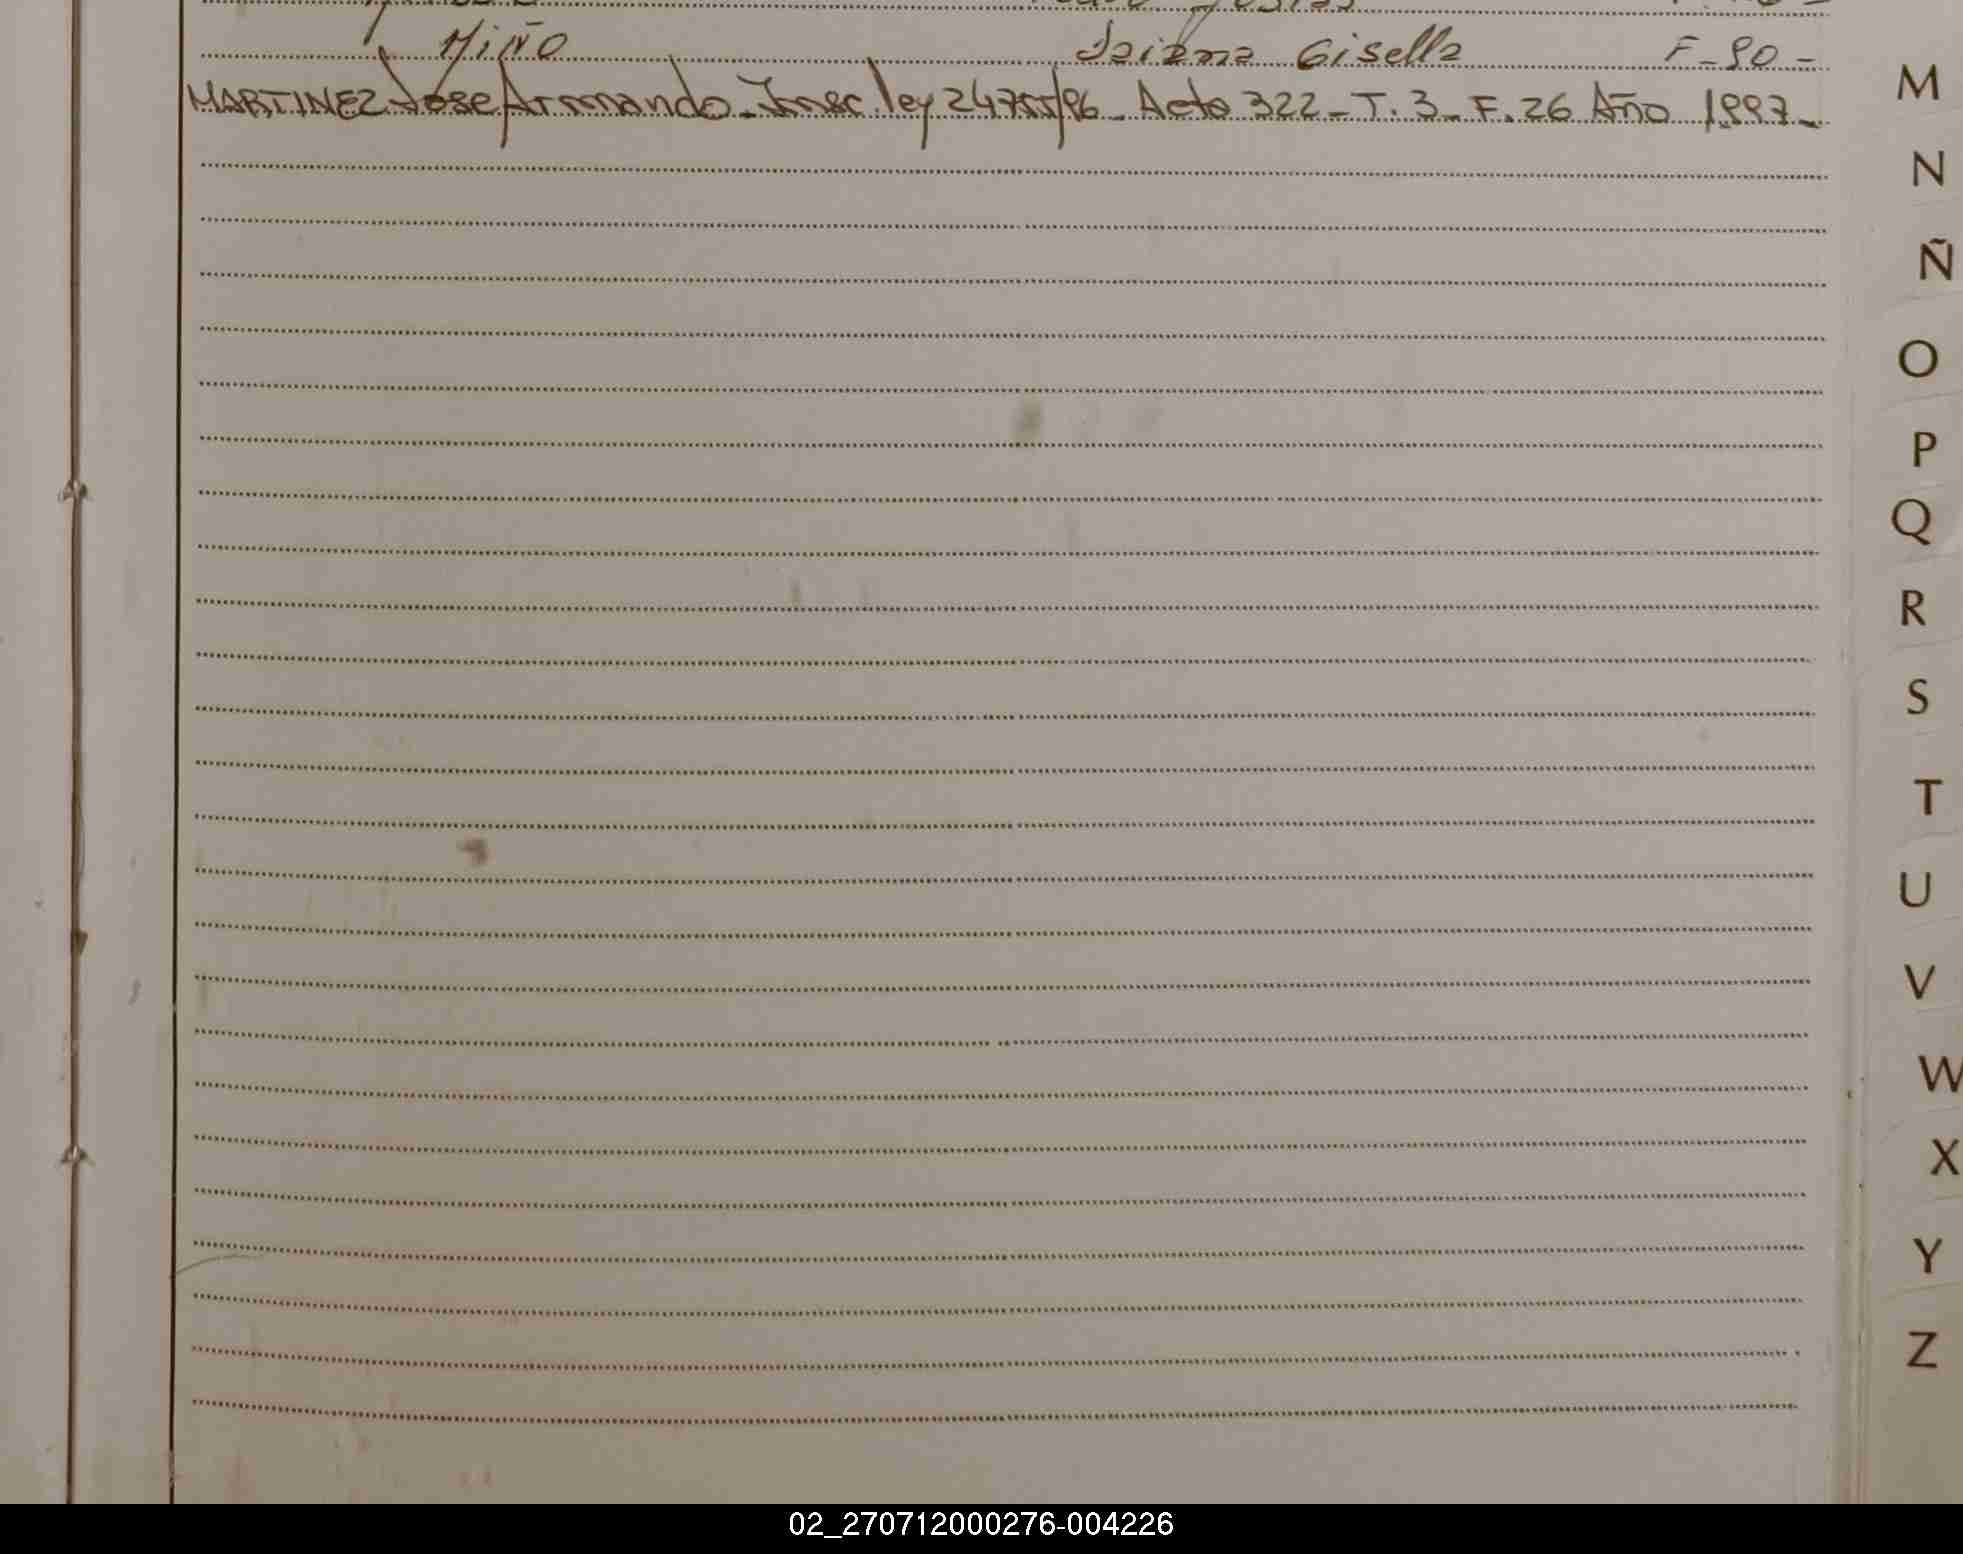 Miño Daiana Gisella F-90-
MARTINEZ José Armando. Insc. ley 24755/96_ Acta 322_ T. 3_ F. 26 Año 1997_
M
N
Ñ
O
P
Q
R
S
T
U
V
W
X
Y
Z
02_270712000276-004226